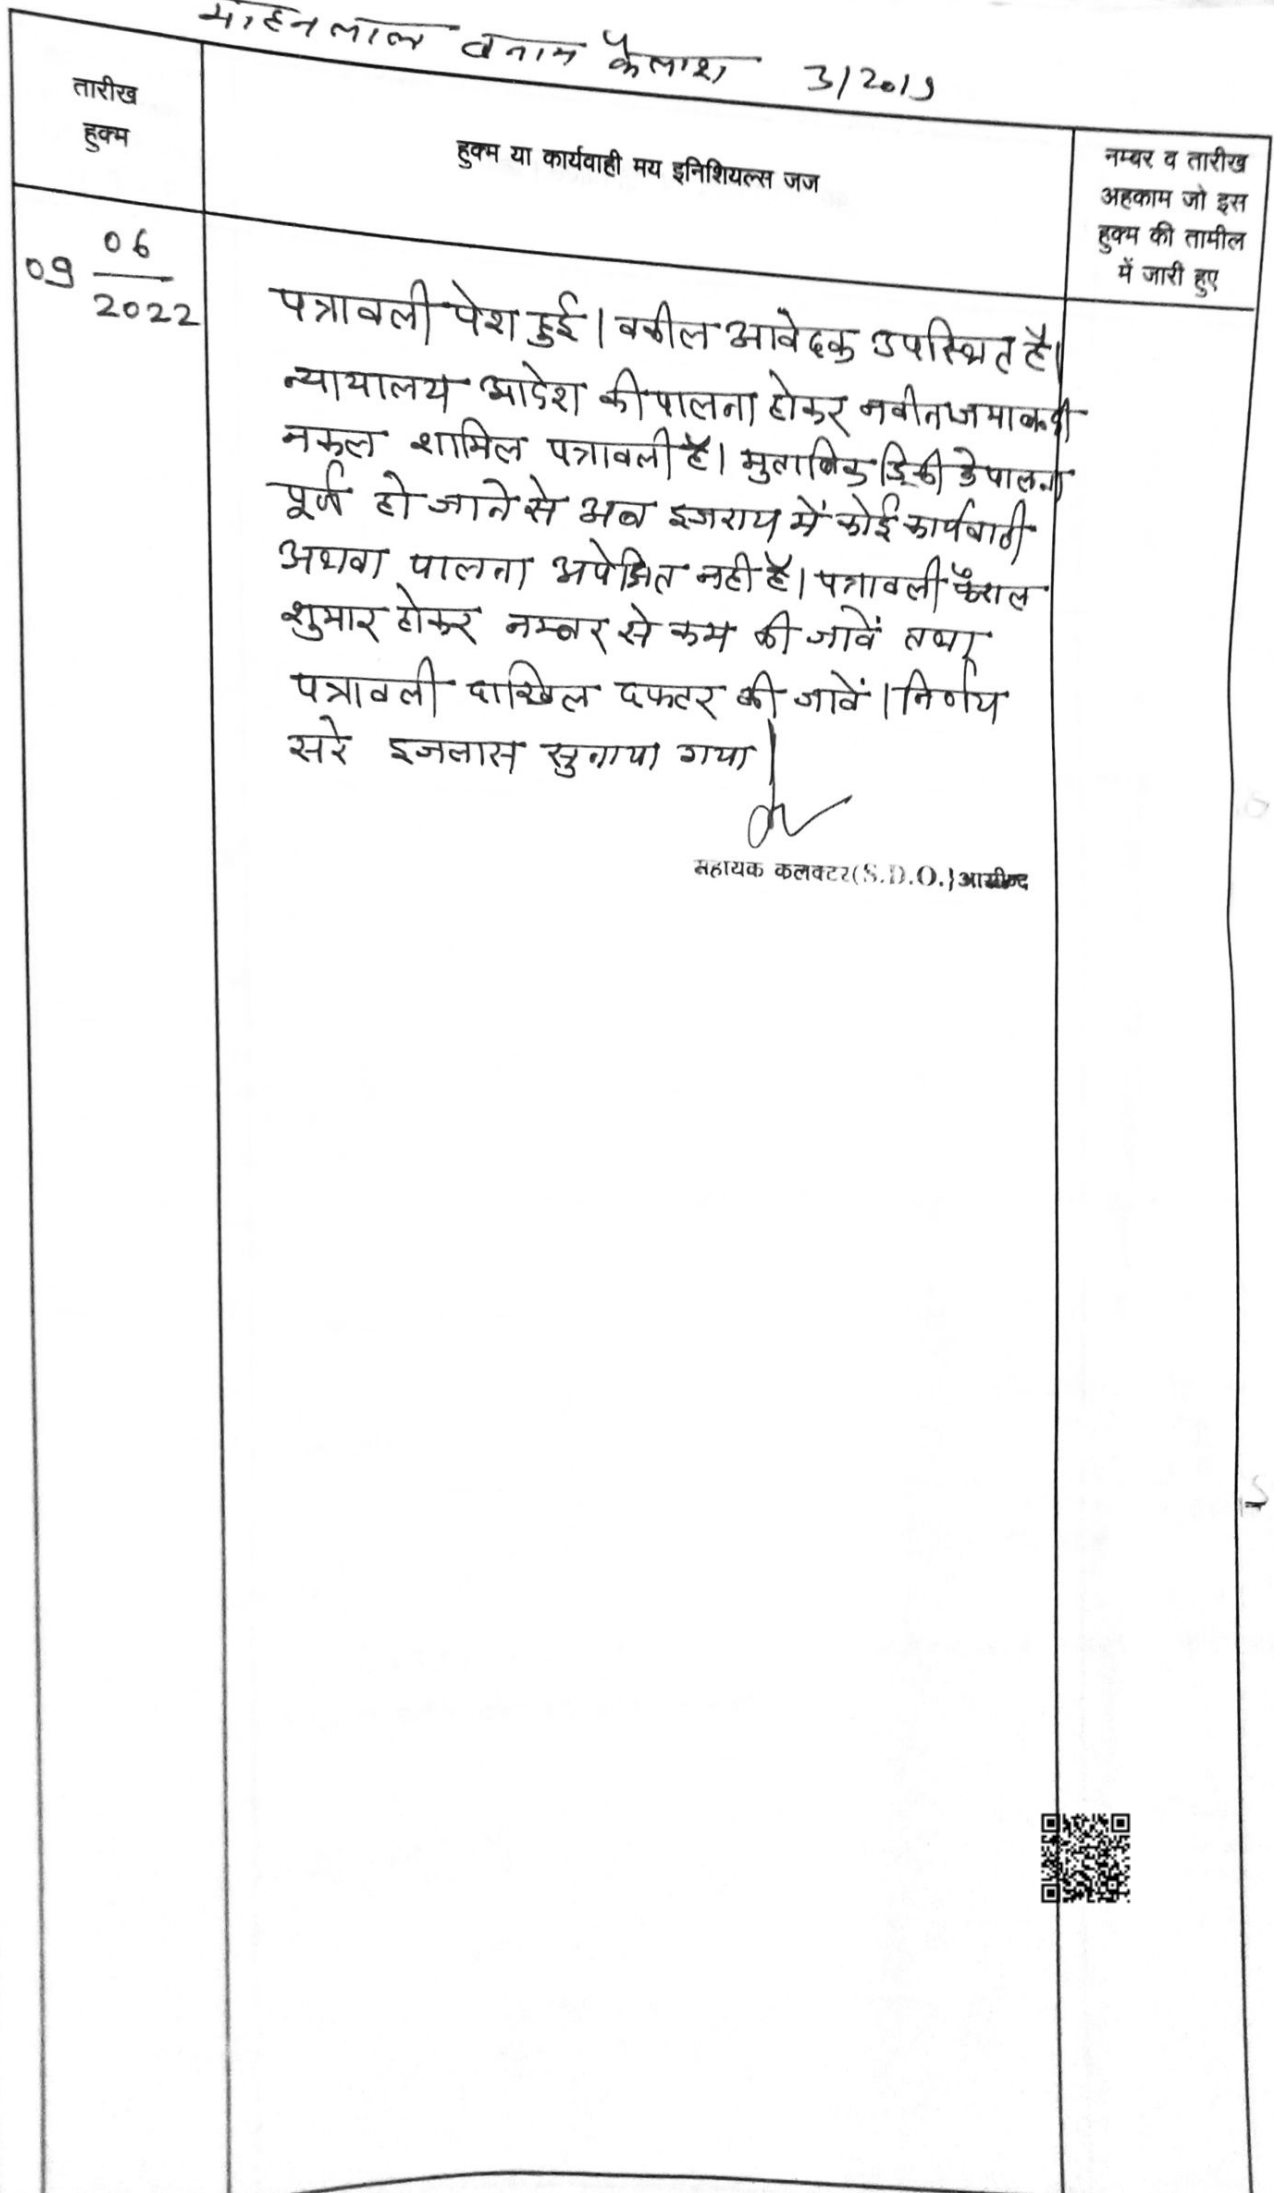 मोहनलाल बनाम कैलाश 3/2019
तारीख
हुक्म
हुक्म या कार्यवाही मय इनिशियल्स जज
नम्बर व तारीख
अहकाम जो इस
हुक्म की तामील
में जारी हुए
09 06
2022
पत्रावली पेश हुई। वकील आवेदक उपस्थित है।
न्यायालय आदेश की पालना होकर नवीन जमाबन्दी
नकल शामिल पत्रावली है। मुताबिक डिक्री के पालना
पूर्ण हो जाने से अब इजराय में कोई कार्यवाही
अथवा पालना अपेक्षित नही है। पत्रावली फैसल
शुमार होकर नम्बर से कम की जावें तथा
पत्रावली दाखिल दफ्टर की जावें। निर्णय
सरे इजलास सुनाया गया।
सहायक कलक्टर(S.D.O.)आसीन्द